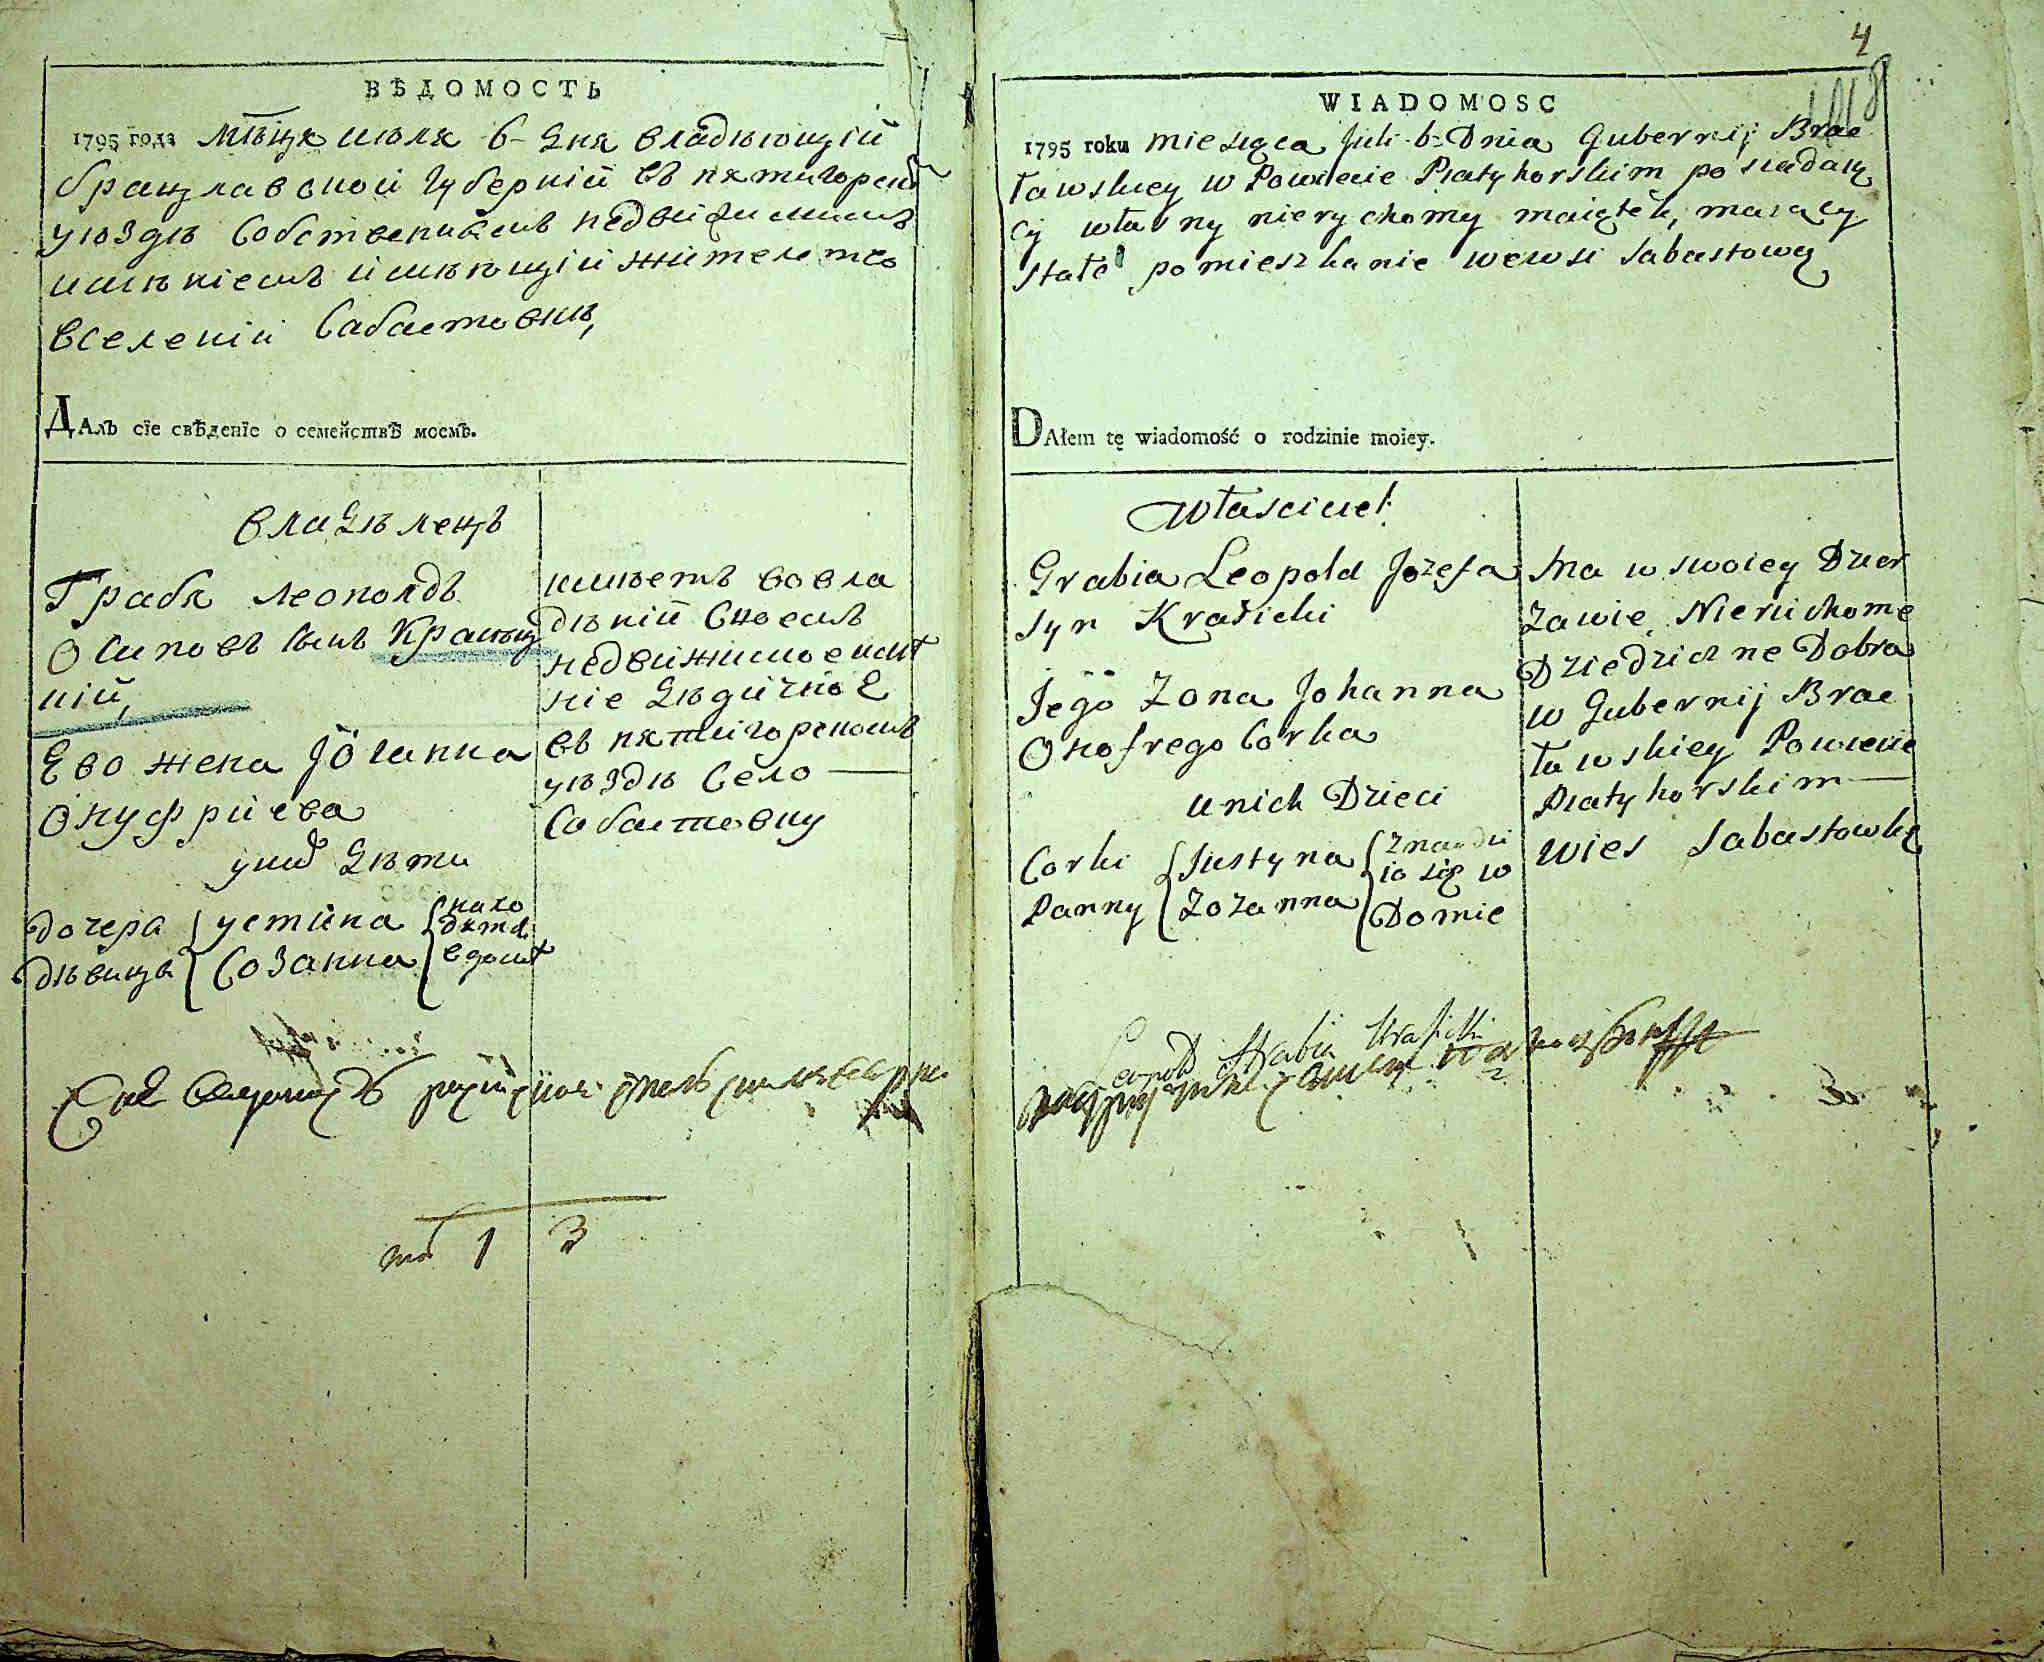 ВѢДОМОСТЬ
1795 года мѣсяца июля 6 дня владѣющій
брацлавской губерніи въ пятигорском
уѣздѣ собственнымъ недвижимымъ
имѣніемъ имѣющій жителство
вселеніи Сабастовкѣ,
Далъ сїе свѣденїе о семействѣ моемъ.
владѣлецъ
Грабя леополдъ
Осиповъ сынъ Красиц
кій,
Ево жена Jоганна
Онуфриева
у них дѣти
дочери устина
дѣвицы Созанна
нахо
дятся
в домѣ
имѣетъ вовла
дѣніи своемъ
недвижимое имѣ
ніе дѣдичное
въ пятигорскомъ
уѣздѣ село
Сабастовку
1 3
4
WIADOMOSC
1795 roku miesiąca Juli 6 Dnia Gubernij Brac
ławskiey w Powiecie Piatyhorskim posiadaią
cy własny nierychomy maiątek, maiący
stałe pomieszkanie wewsi Sabastowcy
DAłem tę wiadomość o rodzinie moiey.
Własciciel
Grabia Leopold Jozefa
syn Krasicki
Jego Zona Johanna
Onofrego Corka
unich Dzieci
Corki Justyna
Panny Zozanna
znaydu
ią się w
Domie
Ma w swoiey Dzier
zawie Nieruchome
Dziedziczne Dobra
w Gubernij Brac
ławskiey Powiecie
Piatyhorskim
Wies Sabastowkę
Leopold Hrabia Krasicki